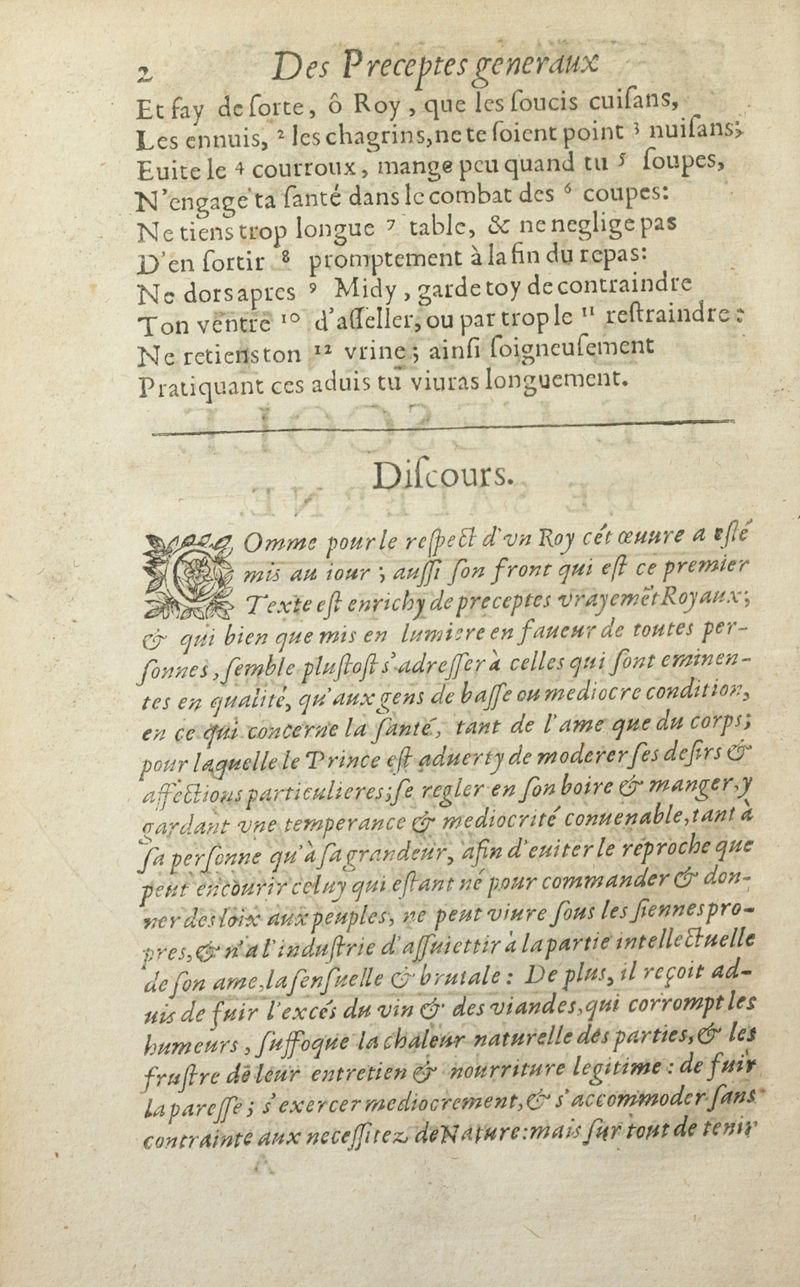 2 Des Preceptes generaux
Et fay de ſorte, ô Roy, que les ſoucis cuiſans,
Les ennuis, ² les chagrins, ne te ſoient point ³ nuiſans;
Euite le ⁴ courroux, mange peu quand tu ⁵ ſoupes,
N'engage ta ſanté dans le combat des ⁶ coupes:
Ne tiens trop longue ⁷ table, & ne neglige pas
D'en ſortir ⁸ promptement à la fin du repas:
Ne dors apres ⁹ Midy, garde toy de contraindre
Ton ventre ¹⁰ d'aſſeller, ou par trop le ¹¹ reſtraindre:
Ne retiens ton ¹² vrine; ainſi ſoigneuſement
Pratiquant ces aduis tu viuras longuement.
Diſcours.
COmme pour le reſpect d'vn Roy cét œuure a eſté
mis au iour; auſſi ſon front qui eſt ce premier
Texte eſt enrichy de preceptes vrayemẽt Royaux;
& qui bien que mis en lumiere en faueur de toutes per-
ſonnes, ſemble pluſtoſt s'adreſſer à celles qui ſont eminen-
tes en qualité, qu'aux gens de baſſe ou mediocre condition,
en ce qui concerne la ſanté, tant de l'ame que du corps;
pour laquelle le Prince eſt aduerty de moderer ſes deſirs &
affections particulieres; ſe regler en ſon boire & manger, y
gardant vne temperance & mediocrité conuenable, tant à
ſa perſonne qu'à ſa grandeur, afin d'euiter le reproche que
peut encourir celuy qui eſtant né pour commander & don-
ner des loix aux peuples, ne peut viure ſous les ſiennes pro-
pres, & n'a l'induſtrie d'aſſuiettir à la partie intellectuelle
de ſon ame, la ſenſuelle & brutale: De plus, il reçoit ad-
uis de fuir l'excés du vin & des viandes, qui corrompt les
humeurs, ſuffoque la chaleur naturelle des parties, & les
fruſtre de leur entretien & nourriture legitime: de fuir
la pareſſe; s'exercer mediocrement, & s'accommoder ſans
contrainte aux neceſſitez de Nature: mais ſur tout de tenir